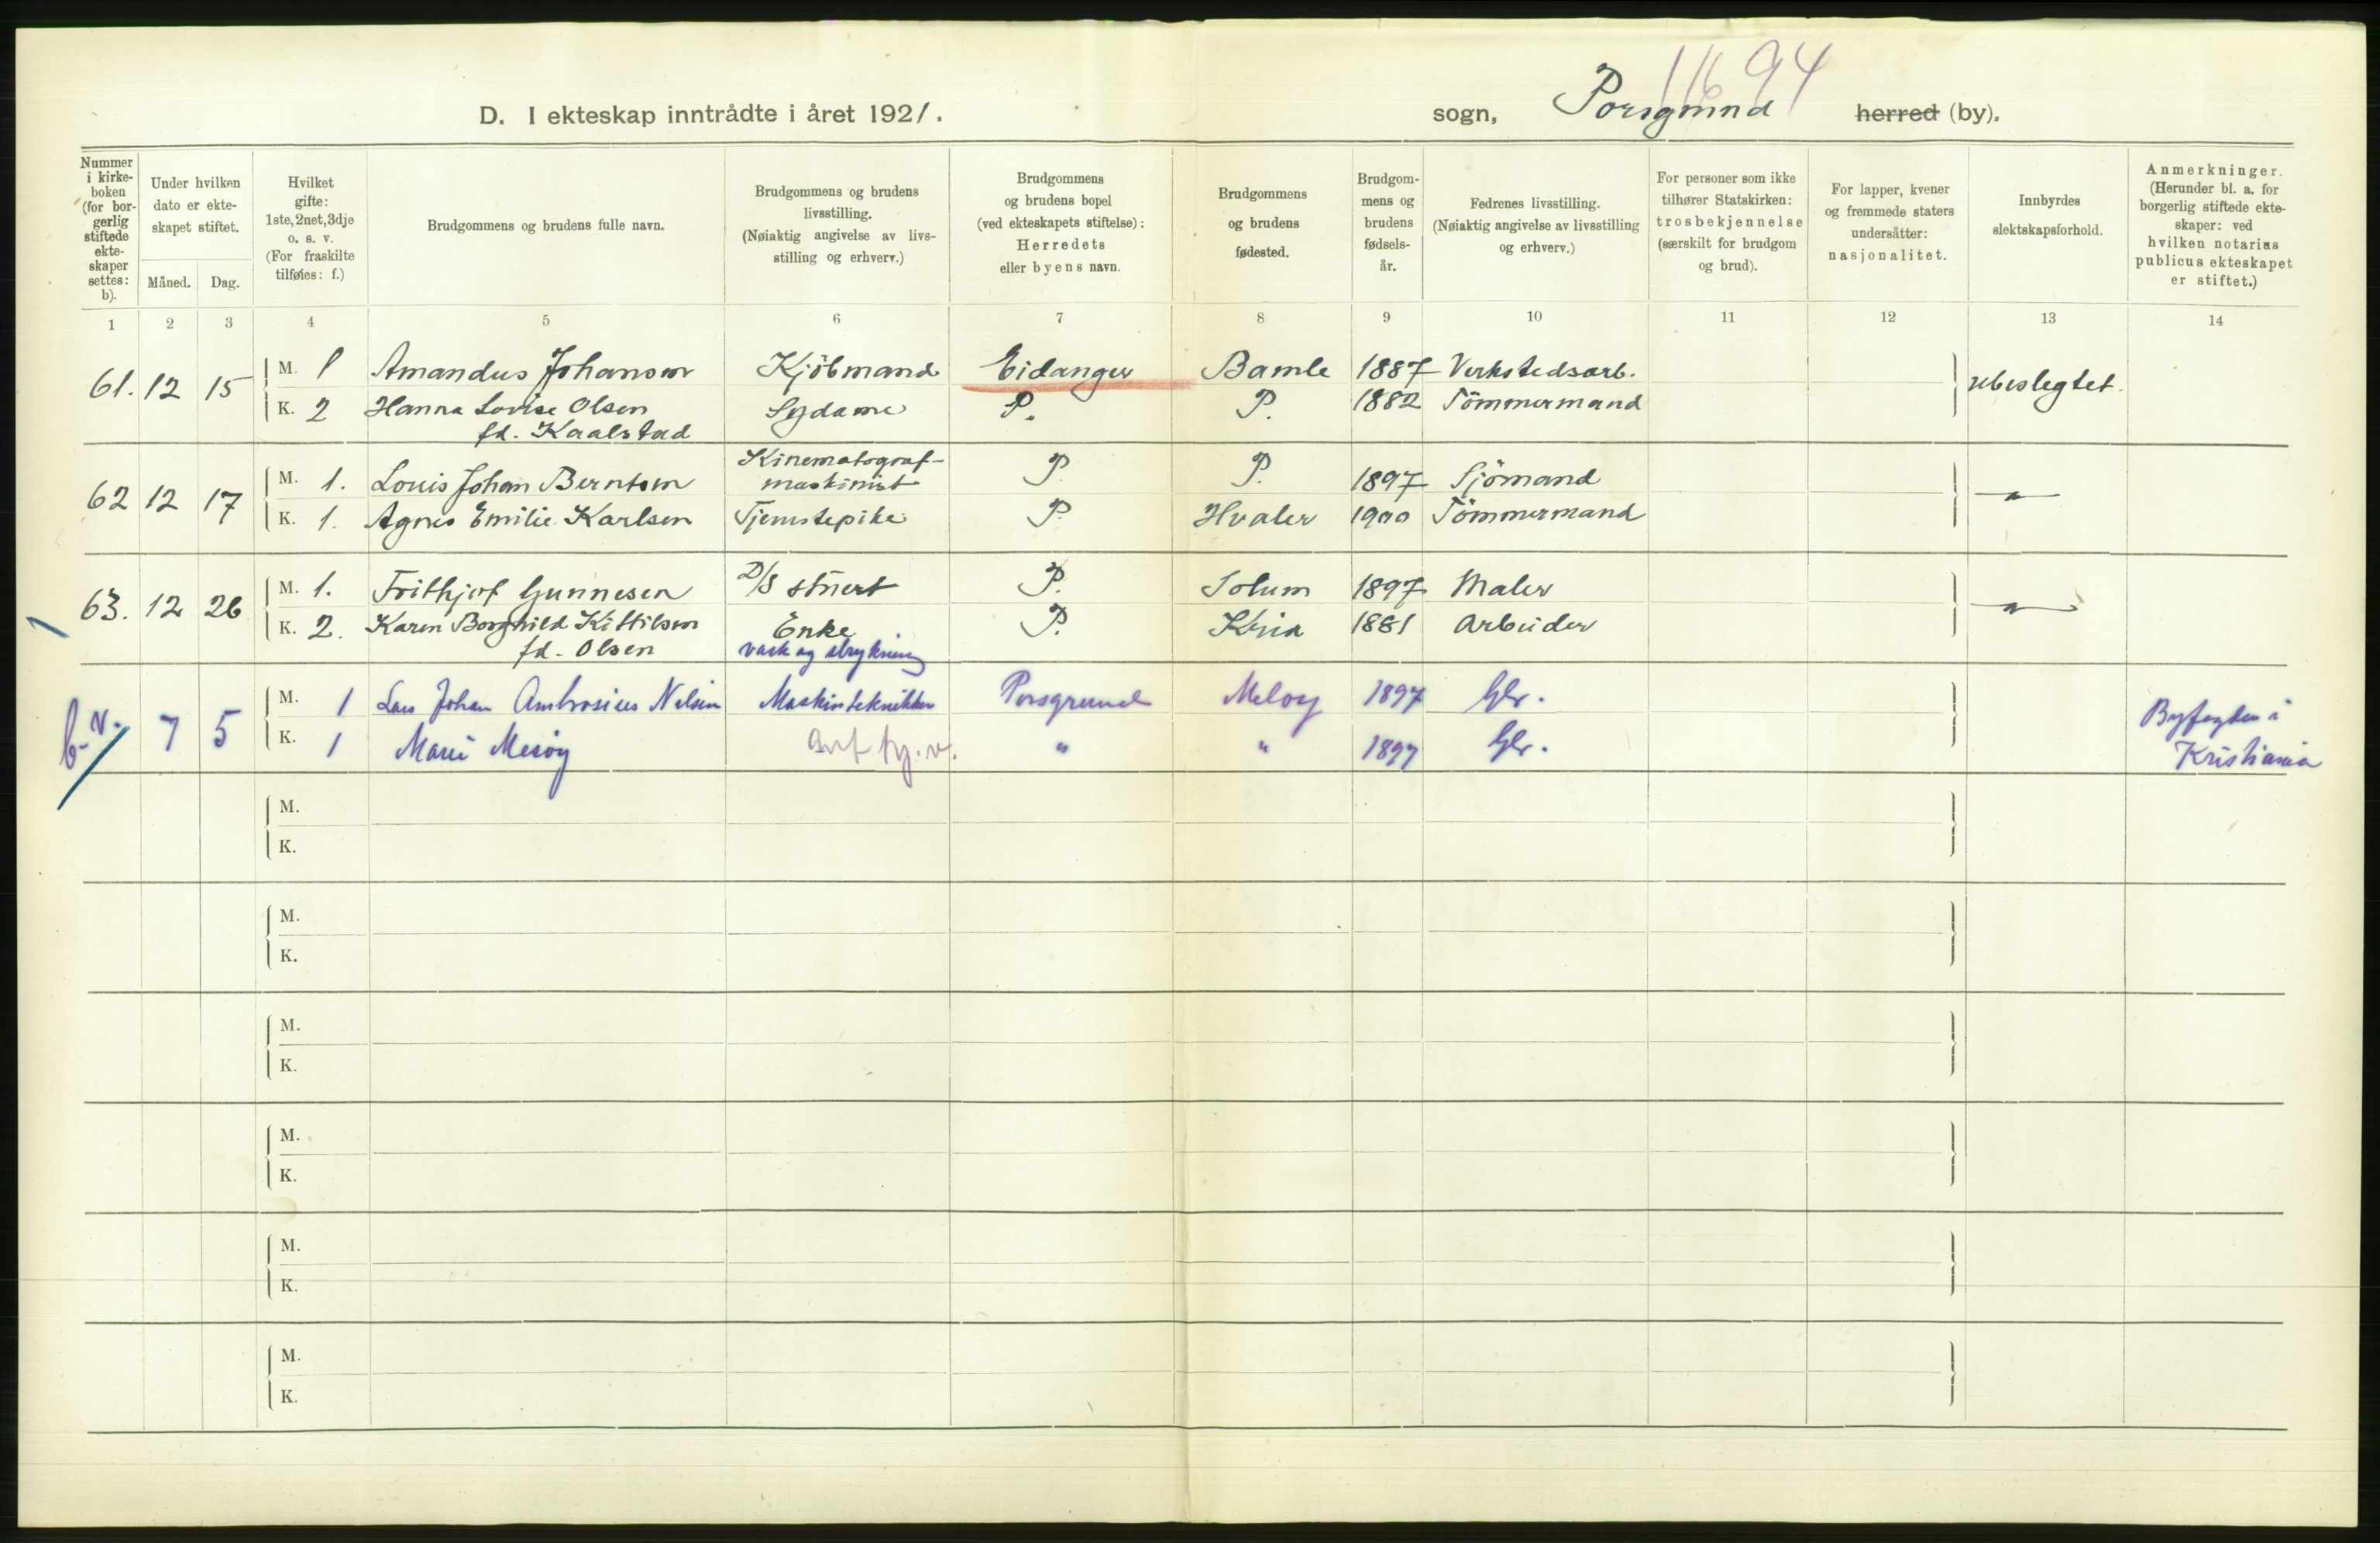 1694
D. I ekteskap inntrådte i året 1921.
sogn, Porsgrund herred (by).
Nummer i kirke-boken (for bor-gerlig stiftede ekte-skaper settes: b).
Under hvilken dato er ekte-skapet stiftet.
Måned. Dag.
Hvilket gifte: 1ste, 2net, 3dje o. s. v. (For fraskilte tilføies: f.)
Brudgommens og brudens fulle navn.
Brudgommens og brudens livsstilling. (Nøiaktig angivelse av livs-stilling og erhverv.)
Brudgommens og brudens bopel (ved ekteskapets stiftelse): Herredets eller byens navn.
Brudgommens og brudens fødested.
Brudgom-mens og brudens fødsels-år.
Fedrenes livsstilling. (Nøiaktig angivelse av livsstilling og erhverv.)
For personer som ikke tilhører Statskirken: trosbekjennelse (særskilt for brudgom og brud).
For lapper, kvener og fremmede staters undersåtter: nasjonalitet.
Innbyrdes slektskapsforhold.
Anmerkninger. (Herunder bl. a. for borgerlig stiftede ekte-skaper: ved hvilken notarius publicus ekteskapet er stiftet.)
1 2 3 4 5 6 7 8 9 10 11 12 13 14
61. 12 15 M. 1 Amandus Johansen Kjöbmand Eidanger Bamle 1887 Verkstedsarb. ubeslegtet.
K. 2 Hanna Lovise Olsen Sydame P. P. 1882 Tömmermand
fd. Kaalstad
62 12 17 M. 1. Louis Johan Berntsen Kinematograf-maskinist P. P. 1897 Sjömand — " —
K. 1. Agnes Emilie Karlsen Tjenestepike P. Hvaler 1900 Tömmermand
63. 12 26 M. 1. Frithjof Gunnesen D/S stuert P. Solum 1897 Maler — " —
K. 2. Karen Borghild Kittilsen Enke P. Kria 1881 Arbeider
fd. Olsen vask og strykning
b.v. 7 5 M. 1 Lars Johan Ambrosius Nelsen Maskintekniker Porsgrund Meloy 1897 Gbr. Byfogden i
K. 1 Marie Mesöy " " 1897 Gbr. Kristiania
M.
K.
M.
K.
M.
K.
M.
K.
M.
K.
M.
K.